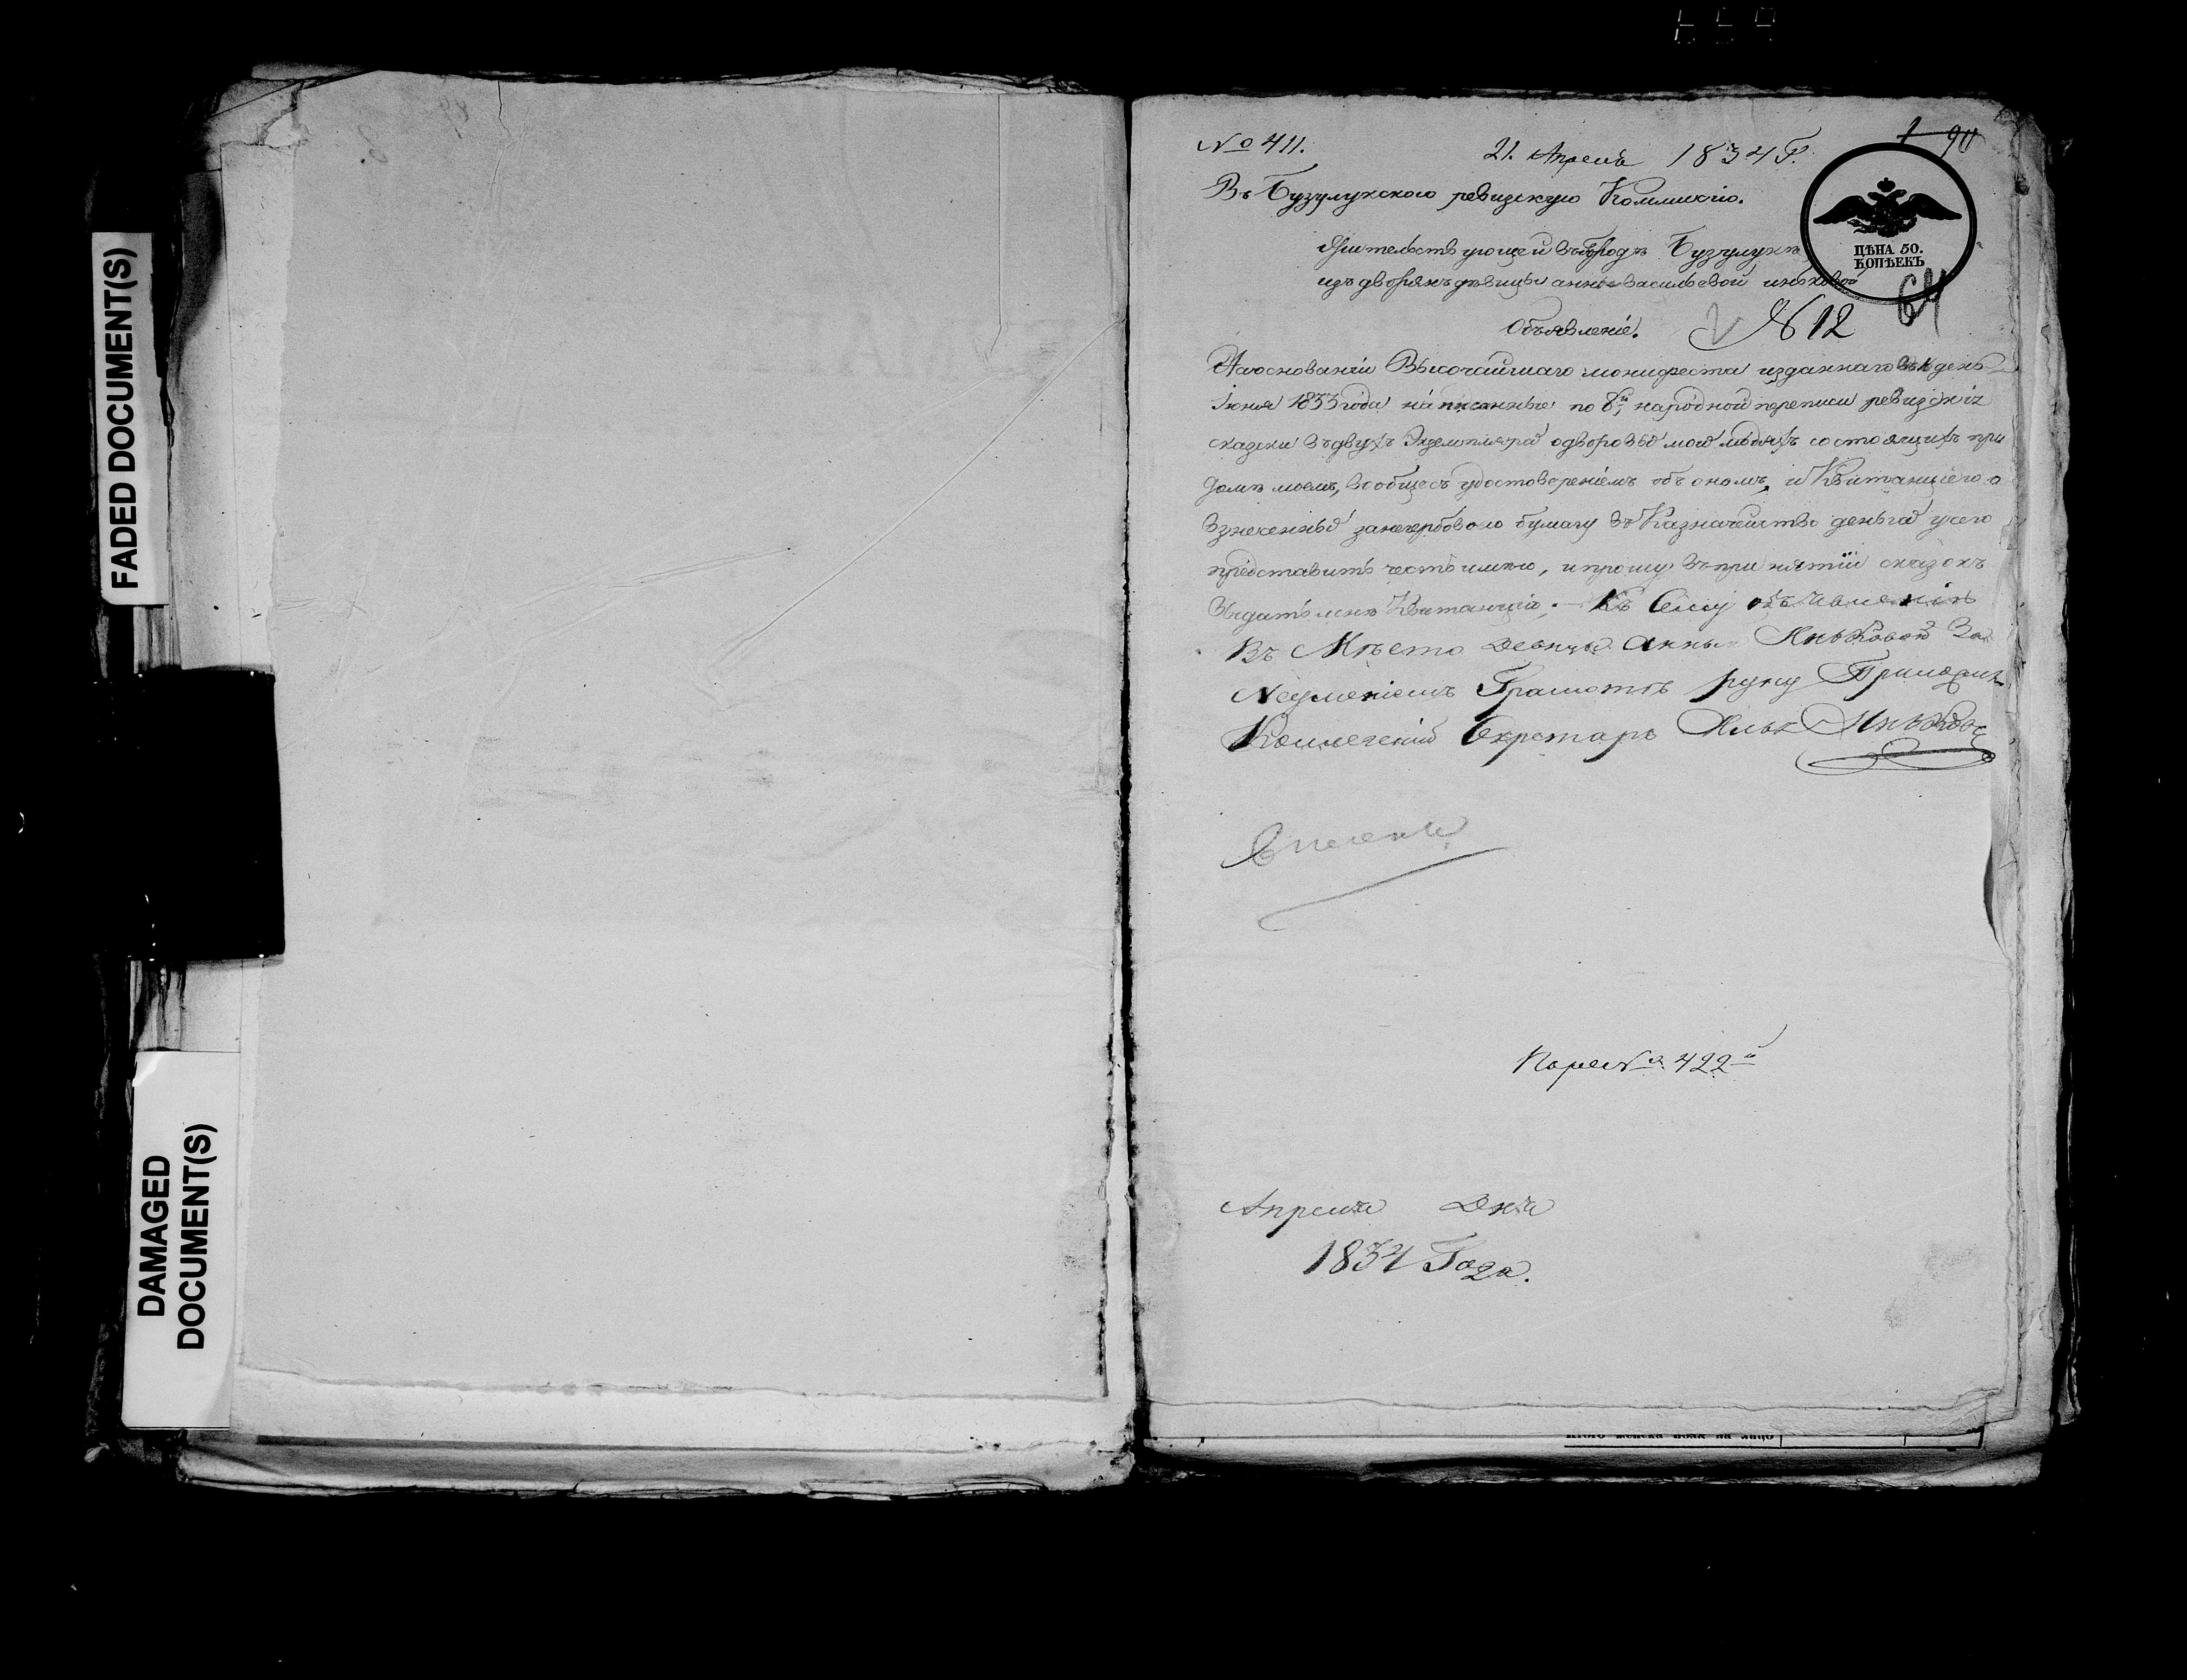 FADED DOCUMENT(S)
DAMAGED
DOCUMENT(S)
№ 411.
21. Апреля 1834 Г.
90
Въ Бузулукскою ревизскую Коммисію.
ЦѢНА 50.
КОПѢЕКЪ
Жительствующей въ городѣ Бузулукѣ
изъ дворянъ дѣвицы анны васильевой иньковой
64
Объявленіе.
№ 12
На основаніи Высочайшаго монифеста изданнаго въ день
Іюня 1833 года написанные по 8й народной переписи ревизскія
сказки въ двухъ Экземплярахъ о дворовыхъ моихъ людяхъ состоящихъ при
домѣ моемъ, вообще съ удостовереніемъ объ ономъ, и Квитанціею о
взнесенныхъ за негербовою бумагу въ Казначейство деньгахъ у сего
представить честь имею, и прошу въ принятіи сказокъ
выдать мнѣ Квитанцію. — Къ Сему объявленію
Въ Мѣсто Девицы Анны Иньковой За
Неуменіемъ Грамоте руку Приложилъ
Коллегскій Секретарь Иньковъ
№ 422й
Апреля Дня
1834 Года.